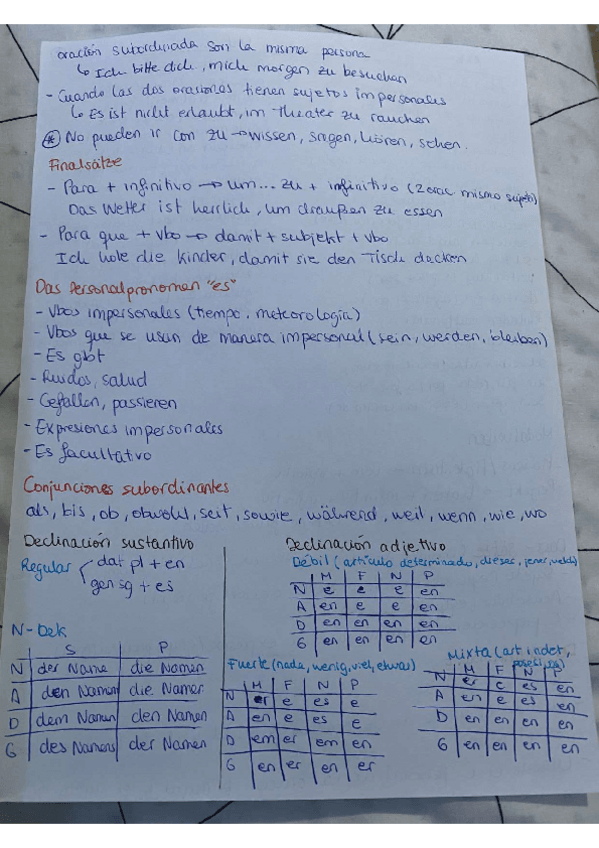 oración subordinada son la misma persona
↳ Ich bitte dich, mich morgen zu besuchen
- Cuando las dos oraciones tienen sujetos impersonales
↳ Es ist nicht erlaubt, im Theater zu rauchen
* No pueden ir con zu → wissen, sagen, hören, sehen.
Finalsätze
- Para + infinitivo → um... zu + infinitivo (2 orac. mismo sujeto)
Das Wetter ist herrlich, um draußen zu essen
- Para que + vbo → damit + subjekt + vbo
Ich hole die Kinder, damit sie den Tisch decken
Das Personalpronomen "es"
- Vbos impersonales (tiempo, meteorologia)
- Vbos que se usan de manera impersonal (sein, werden, bleiben)
- Es gibt
- Ruidos, salud
- Gefallen, passieren
- Expresiones impersonales
- Es facultativo
Conjunciones subordinantes
als, bis, ob, obwohl, seit, sowie, während, weil, wenn, wie, wo
Declinación sustantivo
Regular
dat pl + en
gen sg + es
N-Dek
S P
N der Name die Namen
A den Namen die Namen
D dem Namen den Namen
G des Namens der Namen
Declinación adjetivo
Débil (artículo determinado, dieser, jener, welch)
M F N P
N e e e en
A en e e en
D en en en en
G en en en en
Fuerte (nada, wenig, viel, etwas)
M F N P
N er e es e
A en e es e
D em er em en
G en er en er
Mixta (art indet, posesi,
M F N P
N er e es en
A en e es en
D en en en en
G en en en en